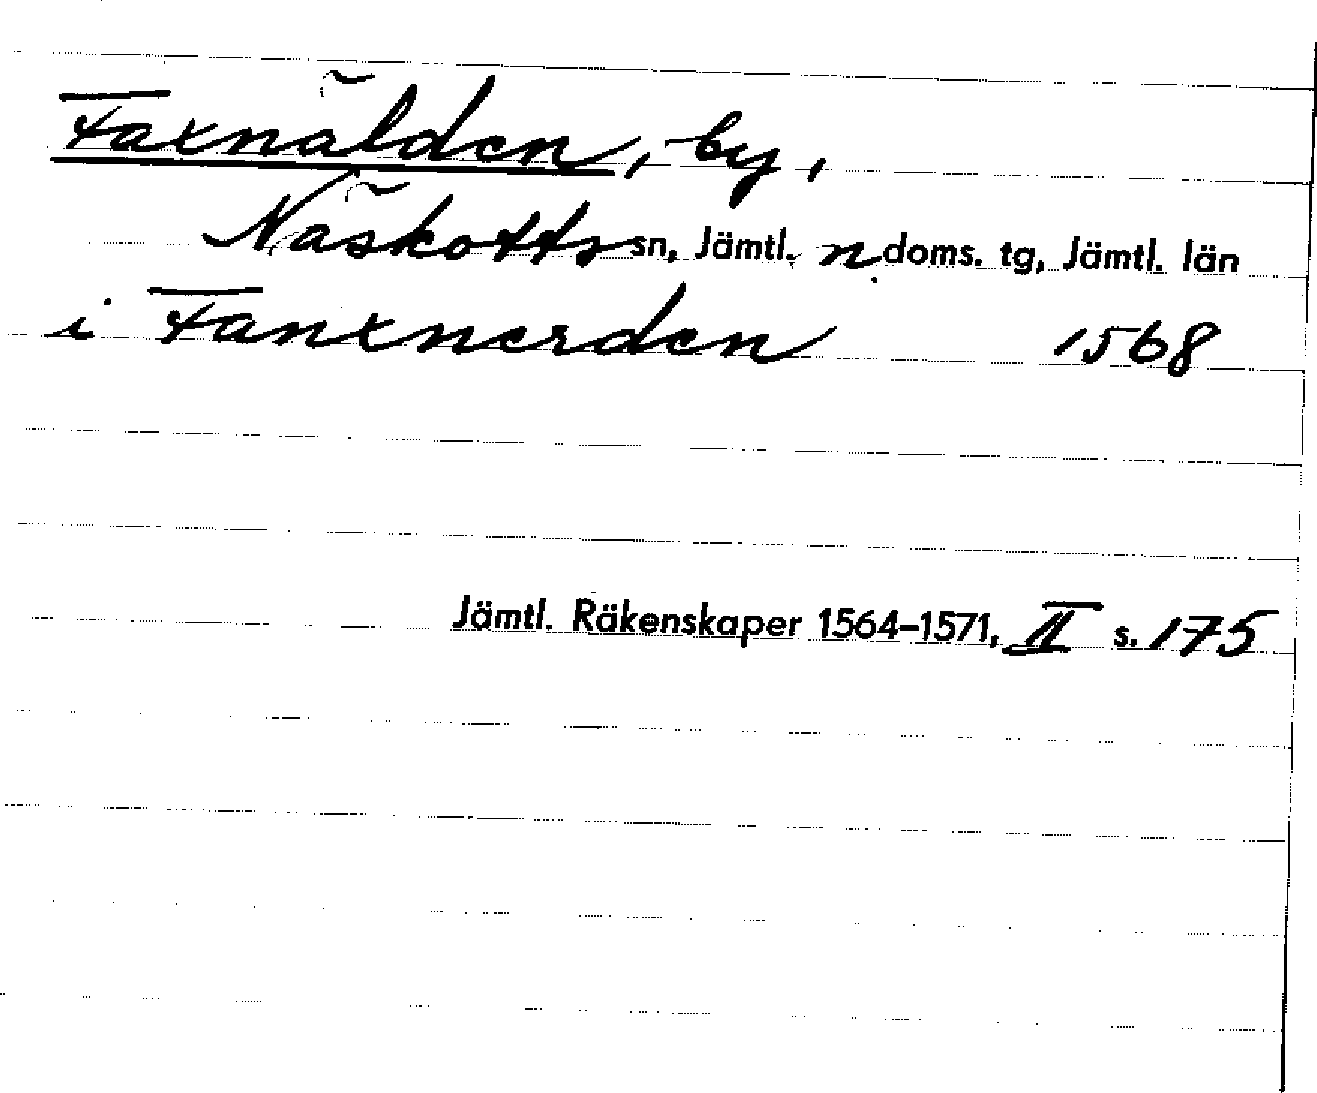 Faxnälden, by,
Näskotts sn, Jämtl. n. doms. tg, Jämtl. län
i Fanxnerden 1568
Jämtl. Räkenskaper 1564-1571, II s. 175